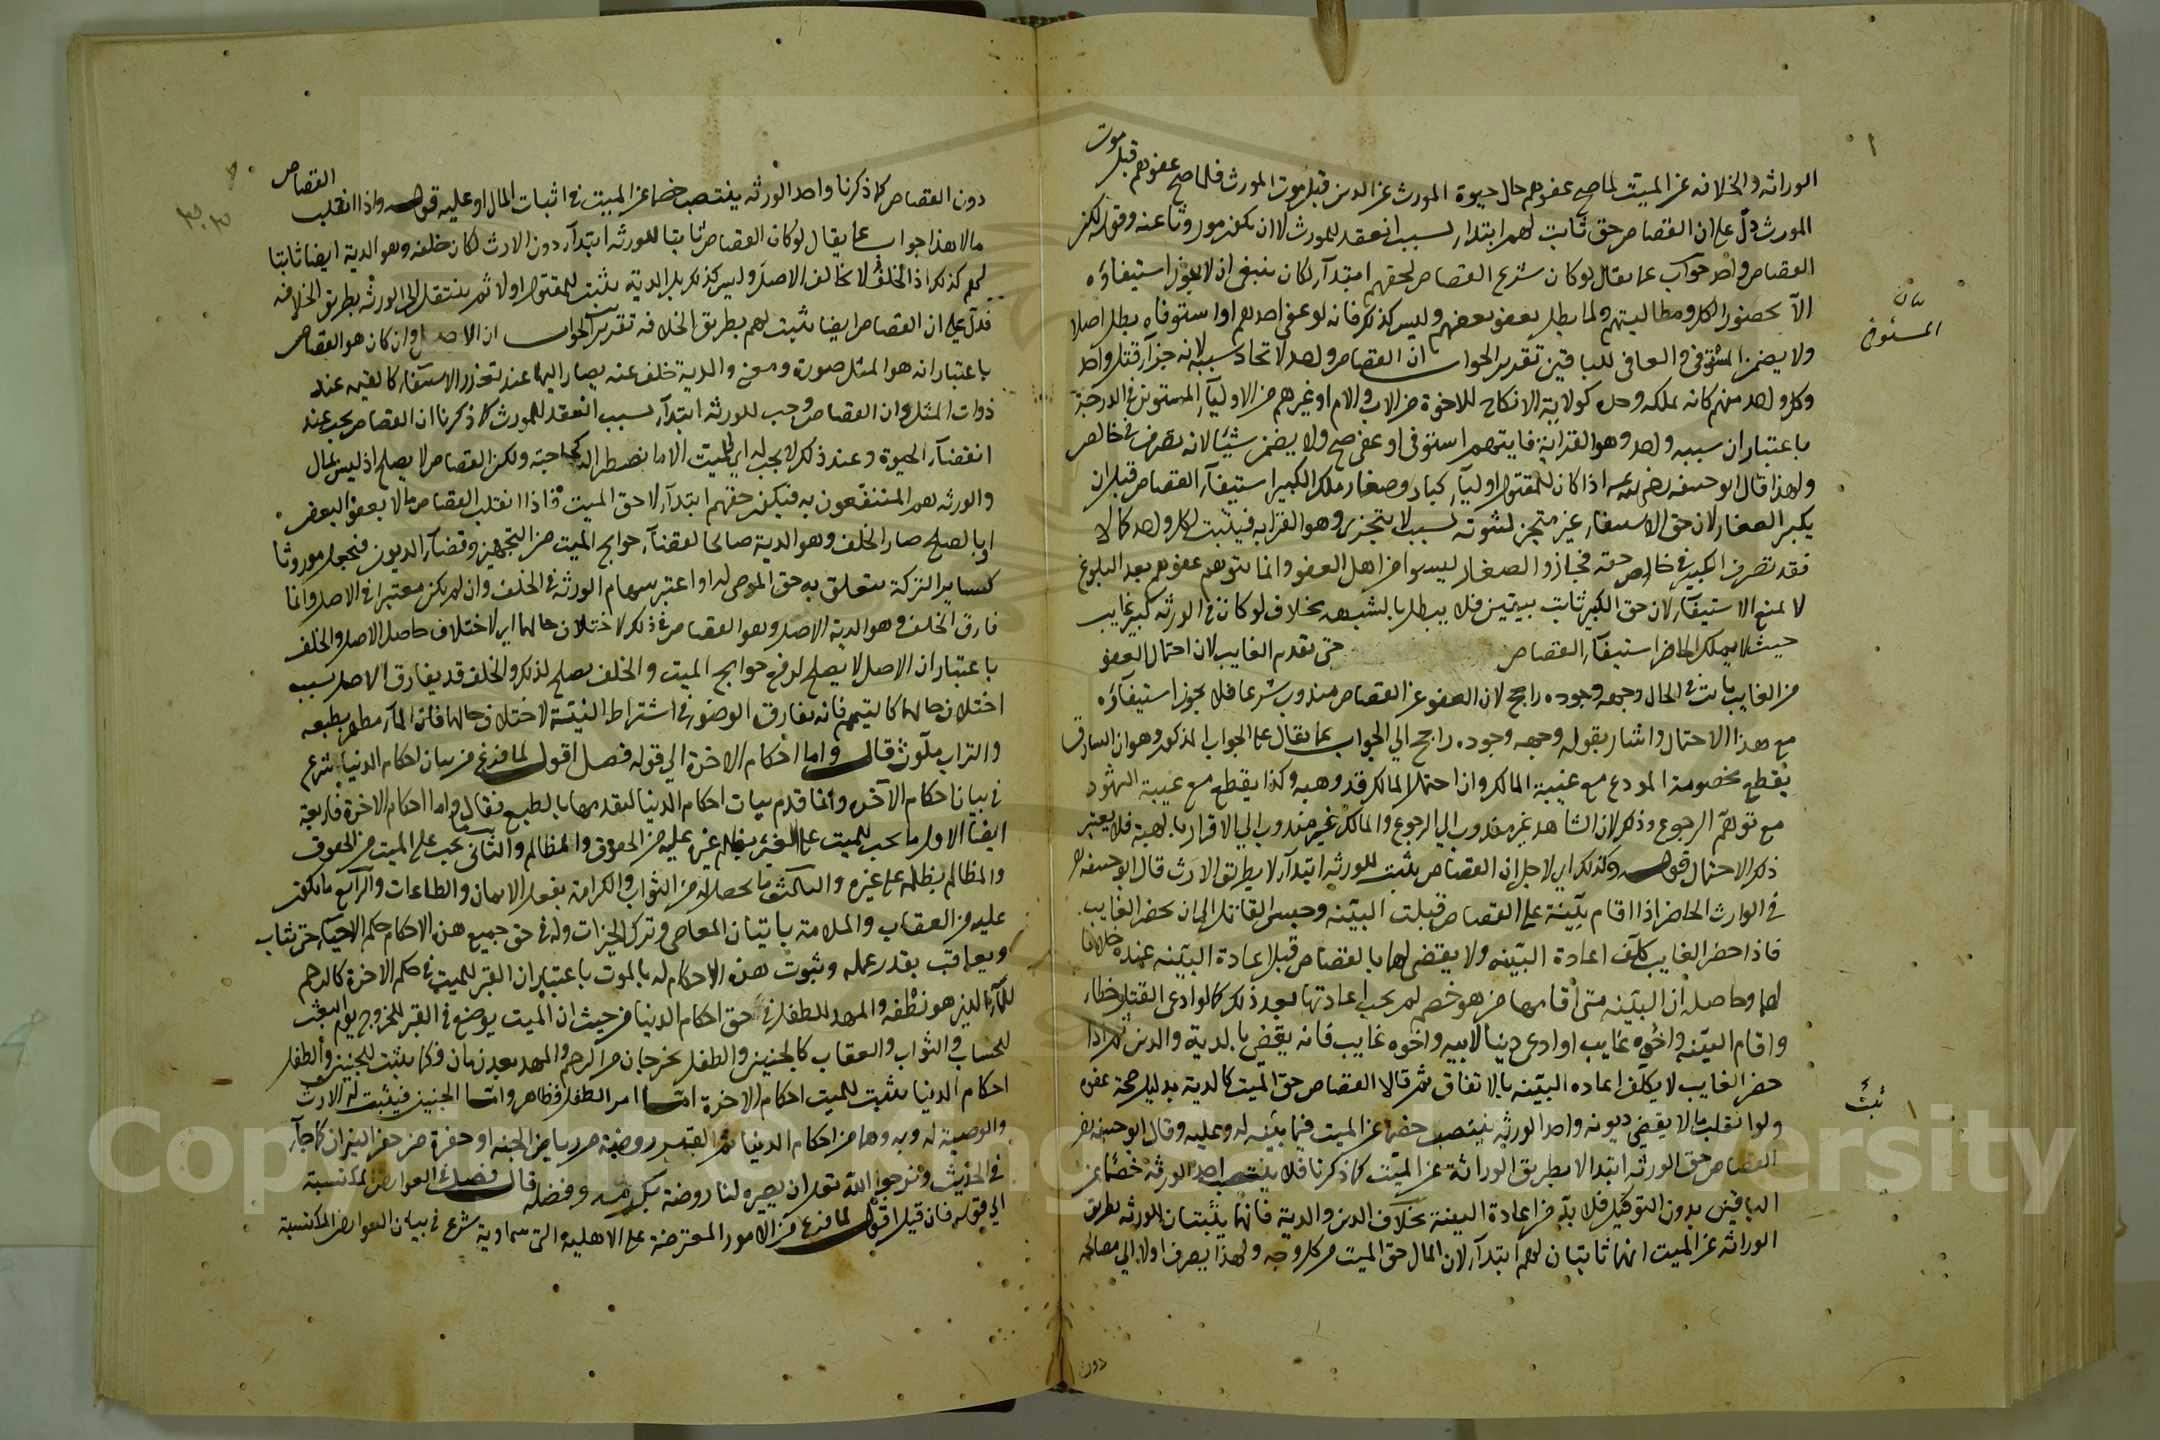 الوراثه والخلافه عن الميت لما صح عفوهم حال حيوة المورث عن الدين قبل موت المورث فلما صح عفوهم قبل موت
المورث دل على ان القصاص حق ثابت لهم ابتداء لسبب انعقد للمورث لا ان يكون موروثا عنه وقوله لكن
القصاص واحد جواب عما يقال لو كان شرع القصاص لحقهم ابتداء لكان ينبغي ان لا يجوز استيفاؤه
الا بحضور الكل ومطالبتهم ولما بطل بعفو بعضهم وليس كذلك فانه لو عفى احدهم او استوفاه بطل اصلا
ولا يضمن المستوفي والعافي للباقين تقرير الجواب ان القصاص واحد لاتحاد سببه لانه جزاء قتل واحد
وكل واحد منهم كانه يملكه وحده كولاية الانكاح للاخوة من الاب والام او غيرهم من الاولياء المستوين في الدرجة
باعتبار ان سببه واحد وهو القرابة فايتهم استوفى او عفى صح ولا يضمن شيئا لانه تصرف في خالص
ولهذا قال ابو حنيفه رضي الله عنه اذا كان للمقتول اولياء كبار وصغار ملك الكبير استيفاء القصاص قبل ان
يكبر الصغار لان حق الاستيفاء غير متجز لثبوته لسبب لا يتجزى وهو القرابه فيثبت لكل واحد كملا
فقد تصرف الكبير في خالص حقه فجاز والصغار ليسوا من اهل العفو وانما يتوهم عفوهم بعد البلوغ
لا يمنع الاستيفاء لان حق الكبير ثابت بيقين فلا يبطل بالشبهه بخلاف لو كان في الورثه كبير غايب
حيث لا يملك الحاضر استيفاء القصاص حتى يقدم الغايب لان احتمال العفو
من الغايب ثابت في الحال وجهه وجوده راجح لان العفو عن القصاص مندوب شرعا فلا يجوز استيفاؤه
مع هذا الاحتمال واشار بقوله وجهه وجوده راجح الي الجواب عما يقال على الجواب المذكور وهو ان السارق
يقطع بخصومة المودع مع غيبة المالك وان احتمل المالك قد وهبه وكذا يقطع مع غيبة الشهود
مع توهم الرجوع وذلك لان الشاهد غير مندوب الي الرجوع والمالك غير مندوب الي الاقرار بالهبة فلا يعتبر
ذلك الاحتمال قوله وكذلك اي لاجل ان القصاص يثبت للورثه ابتداء لا بطريق الارث قال ابو حنيفه
في الوارث الحاضر اذا اقام بينة على القصاص قبلت البينه وحبس القاتل الى ان يحضر الغايب
فاذا حضر الغايب كلف اعادة البينه ولا يقضى لهما بالقصاص قبل اعادة البينه عنده خلافا
لهما وحاصله ان البينه متى اقامها من هو خصم لم يجب اعادتها بعد ذلك كما لو ادعى القتل خطاء
واقام البينه واخوه غايب او ادعى دينا لابيه واخوه غايب فانه يقضى بالدية والدين ثم اذا
حضر الغايب لا يكلف اعاده البينه بالاتفاق ثم قالا القصاص حق الميت كالدية بدليل صحة عفوه
ولو انقلب مالا يقضى ديونه واحد الورثه ينتصب خصما عن الميت فيما يثبت له وعليه وقال ابو حنيفه
القصاص حق الورثه ابتداء لا بطريق الوراثة عن الميت كما ذكرنا فلا ينتصب احد الورثه خصما عن
الباقين بدون التوكيل فلا بد من اعادة البينة بخلاف الدين والدية فانهما يثبتان للورثه بطريق
الوراثه عن الميت انهما ثابتان لهم ابتداء لان المال حق الميت من كل وجه ولهذا يصرف اولا الي مصالحه
دون
المستوفى
دون القصاص كما ذكرنا واحد الورثه ينتصب خصما عن الميت في اثبات المال او عليه قوله واذا انقلب القصاص
مالا هذا جواب عما يقال لو كان القصاص ثابتا للورثه ابتداء دون الارث لكان خلفه وهو الدية ايضا ثابتا
لهم كذلك اذ الخلف لا يخالف الاصل وليس كذلك بل الدية يثبت للمقتول اولا ثم ينتقل الى الورثه بطريق الخلافه
فدل على ان القصاص ايضا يثبت لهم بطريق الخلافه تقرير الجواب ان الاصل وان كان هو القصاص
باعتبار انه هو المثل صورة ومعنى والدية خلف عنه يصار اليها عند تعذر الاستيفاء كالقيمه عند
ذوات المثل وان القصاص وجب للورثه ابتداء بسبب انعقد للمورث كما ذكرنا ان القصاص يجب عند
انقضاء الحيوة وعند ذلك لا يجب له اي للميت الا ما يضطر اليه لحاجته ولكن القصاص لا يصلح اذ ليس بمال
والورثه هم المنتفعون به فيكون حقهم ابتداء لا حق الميت فاذا انقلب القصاص مالا بعفو البعض
او بالصلح صار الخلف وهو الدية صالحا لقضاء حوايج الميت من التجهيز وقضاء الديون فيجعل موروثا
كساير التركة يتعلق به حق الموصى له او اعتبر سهام الورثة في الخلف وان لم يكن معتبرا في الاصل وانما
فارق الخلف وهو الدية الاصل وهو القصاص في ذلك لاختلاف حالهما اي لاختلاف حاصل الاصل والخلف
باعتبار ان الاصل لا يصلح لدفع حوايج الميت والخلف يصلح لذلك والخلف قد يفارق الاصل بسبب
اختلاف حالهما كالتيمم فانه يفارق الوضوء في اشتراط النية لاختلاف حالهما فان الماء مطهر بطبعه
والتراب ملوث قال واما احكام الاخرة الي قوله فصل اقول لما فرغ من بيان احكام الدنيا شرع
في بيان احكام الآخره وانما قدم بيان احكام الدنيا لتقدمها بالطبع فقال واما احكام الاخرة فاربعة
ايضا الاول ما يجب للميت على الغير بظلم غيره عليه من الحقوق والمظالم والثاني ما يجب على الميت من الحقوق
والمظالم بظلمه على غيره والثالث ما يحصل له من الثواب والكرامة بفعل الايمان والطاعات والرابع ما يكون
عليه من العقاب والملامة باتيان المعاصي وترك الخيرات وله في حق جميع هذه الاحكام حكم الاحياء حتى يثاب
ويعاقب بقدر عمله وثبوت هذه الاحكام له بالموت باعتبار ان القبر للميت في حكم الاخرة كالرحم
للماء الذي هو نطفه والمهد للطفل في حق احكام الدنيا من حيث ان الميت يوضع في القبر للخروج يوم البعث
للحساب والثواب والعقاب كالجنين والطفل يخرجان من الرحم والمهد بعد زمان فكما يثبت للجنين والطفل
احكام الدنيا يثبت للميت احكام الاخرة اما امر الطفل فظاهر واما الجنين فيثبت له الارث
والوصية له وبه وهما من احكام الدنيا ثم القبر روضة من رياض الجنه او حفرة من حفر النيران كما جاء
في الحديث ونرجو الله تعالى ان يصيره لنا روضة بكرمه وفضله قال فصل في العوارض المكتسبة
الى قوله فان قيل اقول لما فرغ من الامور المعترضة على الاهليه والتي سماوية شرع في بيان العوارض المكتسبة
Copyright © King Saud University